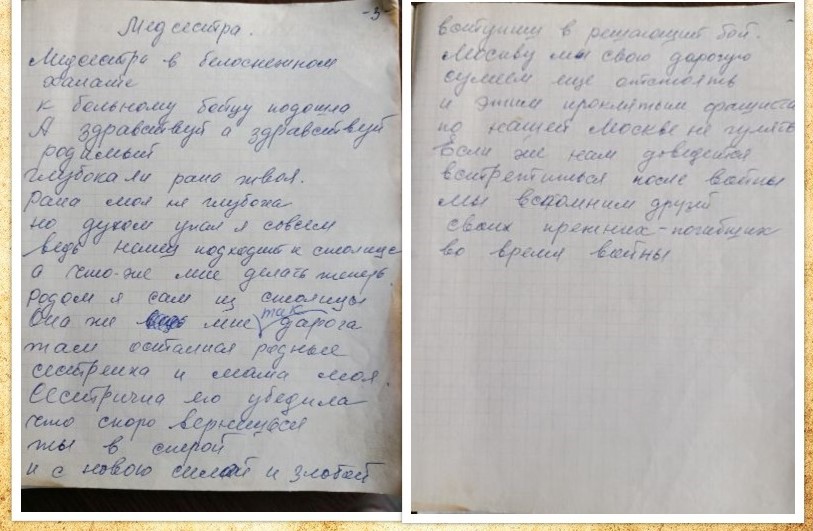 -3-
Медсестра.
Медсестра в белоснежном
халате
к больному бойцу подошла
А здравствуй а здравствуй
родимый
глубока ли рана твоя.
Рана моя не глубока
но духом упал я совсем
ведь немец подходит к столице
а что-же мне делать теперь.
родом я сам из столицы
Она же мне так дарога
там остались родные
сестренка и мама моя.
Сестричка его убедила
что скоро вернешься
ты в строй
и с новою силой и злобой
вступиш в решающий бой.
Москву мы свою дорогую
сумеем еще отстоять
и этим проклятым фашистам
по нашей Москве не гулять
Если же нам доведется
встретиться после войны
мы вспомним друзей
своих прежних-погибших
во время войны